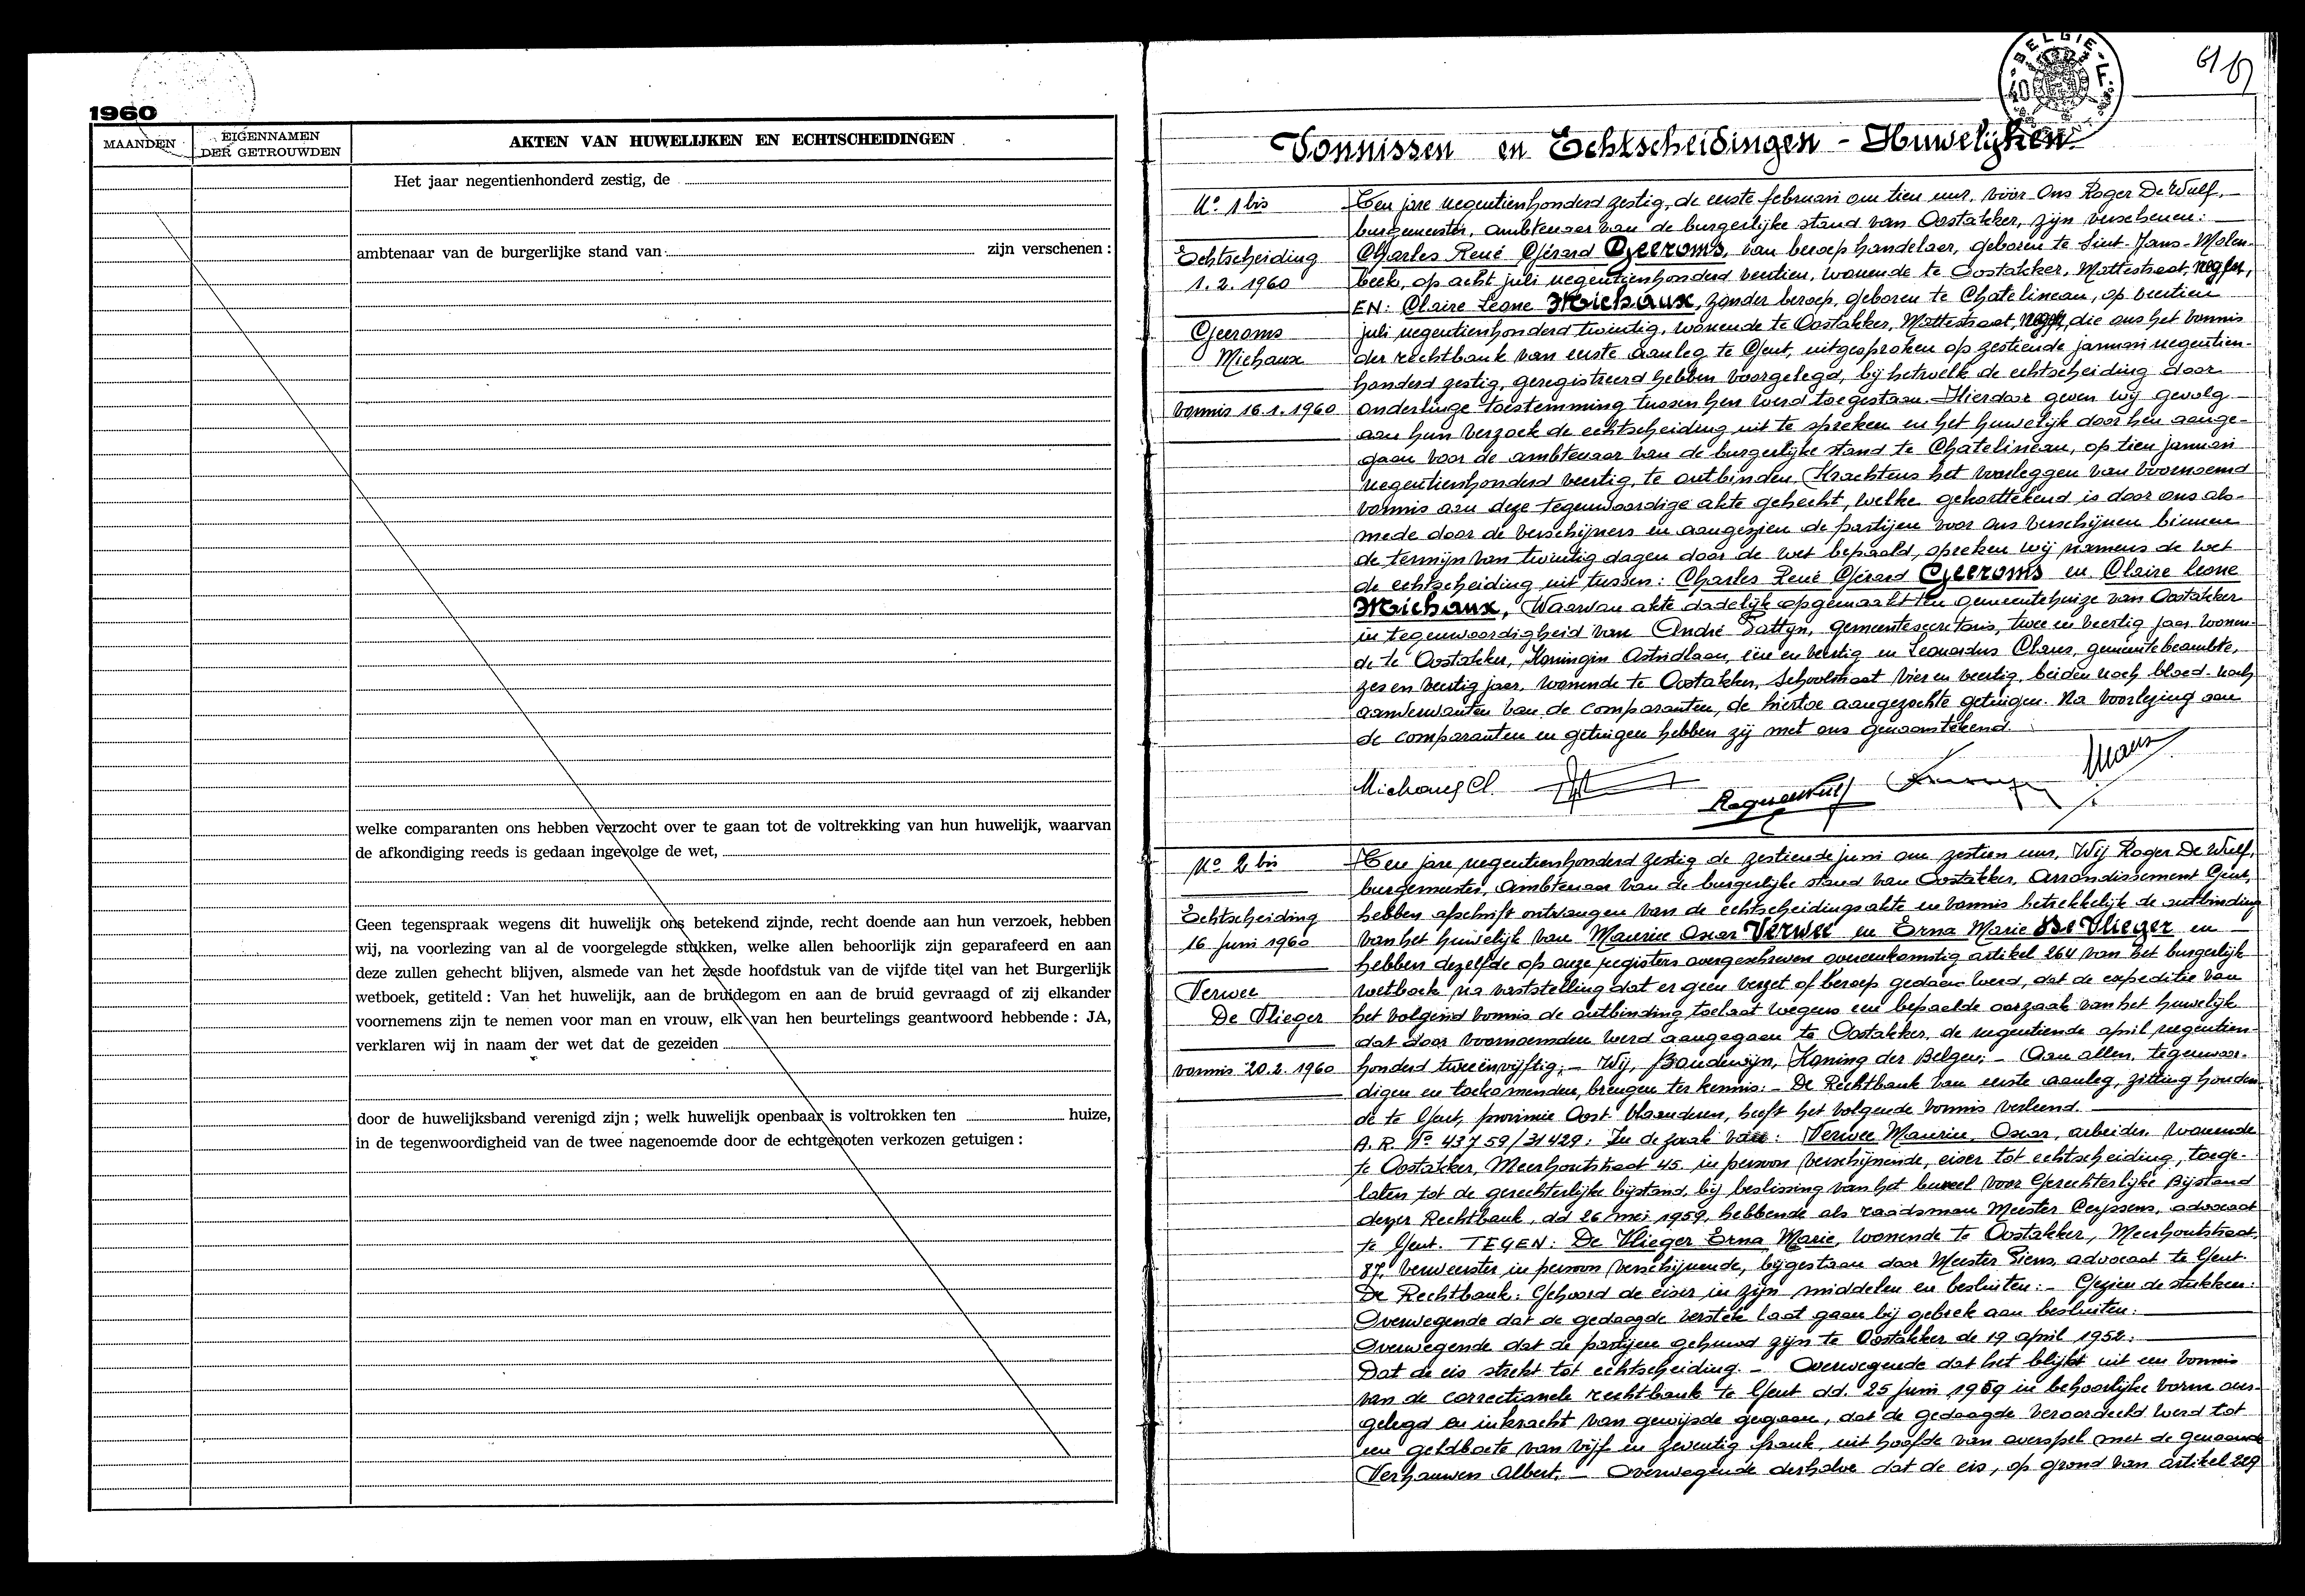 1960
MAANDEN
EIGENNAMEN
DER GETROUWDEN
AKTEN VAN HUWELIJKEN EN ECHTSCHEIDINGEN
Het jaar negentienhonderd zestig, de
ambtenaar van de burgerlijke stand van zijn verschenen :
welke comparanten ons hebben verzocht over te gaan tot de voltrekking van hun huwelijk, waarvan
de afkondiging reeds is gedaan ingevolge de wet,
Geen tegenspraak wegens dit huwelijk ons betekend zijnde, recht doende aan hun verzoek, hebben
wij, na voorlezing van al de voorgelegde stukken, welke allen behoorlijk zijn geparafeerd en aan
deze zullen gehecht blijven, alsmede van het zesde hoofdstuk van de vijfde titel van het Burgerlijk
wetboek, getiteld : Van het huwelijk, aan de bruidegom en aan de bruid gevraagd of zij elkander
voornemens zijn te nemen voor man en vrouw, elk van hen beurtelings geantwoord hebbende : JA,
verklaren wij in naam der wet dat de gezeiden
door de huwelijksband verenigd zijn ; welk huwelijk openbaar is voltrokken ten huize,
in de tegenwoordigheid van de twee nagenoemde door de echtgenoten verkozen getuigen :
BELGIE
Vonnissen en Echtscheidingen - Huwelijken
N° 1 bis
Echtscheiding
1. 2. 1960
Geeroms
Michaux
Vonnis 16.1.1960
Ten jare negentienhonderd zestig, de eerste februari om tien uur, vóór Ons Roger De Wulf,
burgemeester, ambtenaar van de burgerlijke stand van Oostakker, zijn verschenen :
Charles René Gérard Geeroms, van beroep handelaar, geboren te Sint-Jans-Molen-
beek, op acht juli negentienhonderd veertien, wonende te Oostakker, Mottestraat,
EN: Claire Leone Michaux, zonder beroep, geboren te Chatelineau, op veertien
juli negentienhonderd twintig, wonende te Oostakker, Mottestraat, die ons het vonnis
der rechtbank van eerste aanleg te Gent, uitgesproken op zestiende januari negentien-
honderd zestig, geregistreerd hebben voorgelegd, bij hetwelk de echtscheiding door
onderlinge toestemming tussen hen werd toegestaan. Hierdoor geven wij gevolg
aan hun verzoek de echtscheiding uit te spreken en het huwelijk door hen aange-
gaan voor de ambtenaar van de burgerlijke stand te Chatelineau, op tien januari
negentienhonderd veertig, te ontbinden. Krachtens het voorleggen van voornoemd
vonnis aan deze tegenwoordige akte gehecht, welke gekorttekend is door ons als-
mede door de verschijners en aangezien de partijen voor ons verschijnen binnen
de termijn van twintig dagen door de wet bepaald, spreken wij namens de wet
de echtscheiding uit tussen : Charles René Gérard Geeroms en Claire Leone
Michaux, Waarvan akte dadelijk opgemaakt ten gemeentehuize van Oostakker
in tegenwoordigheid van André Dattyn, gemeentesecretaris, twee en veertig jaar, wonen-
de te Oostakker, Koningin Astridlaan, één en veertig en Leonardus Claus, gemeentebeambte,
zes en veertig jaar, wonende te Oostakker, Schoolstraat vier en veertig, beiden noch bloed- noch
aanverwanten van de comparanten, de hiertoe aangezochte getuigen. Na voorlezing aan
de comparanten en getuigen hebben zij met ons genaamtekend.
Michaux Cl.
Roger De Wulf
Claus
N° 2 bis
Echtscheiding
16 Juni 1960
Verwee
De Vlieger
Vonnis 20.2.1960
Ten jare negentienhonderd zestig de zestiende juni om zestien uur, Wij Roger De Wulf,
burgemeester, ambtenaar van de burgerlijke stand van Oostakker, Arrondissement Gent,
hebben afschrift ontvangen van de echtscheidingsakte en vonnis betrekkelijk de ontbinding
van het huwelijk van Maurice Oscar Verwee en Erna Marie De Vlieger en
hebben dezelfde op onze registers overgeschreven overeenkomstig artikel 264 van het burgerlijk
wetboek na vaststelling dat er geen verzet of beroep gedaan werd, dat de expeditie van
het volgend vonnis de ontbinding toelaat wegens een bepaalde oorzaak van het huwelijk
dat door voornoemden werd aangegaan te Oostakker, de negentiende april negentien-
honderd tweeënvijftig. - Wij, Boudewijn, Koning der Belgen; - Aan allen, tegenwoor-
digen en toekomenden, brengen ter kennis: - De Rechtbank van eerste aanleg, zitting houden-
de te Gent, provincie Oost-Vlaanderen, heeft het volgende vonnis verleend.
A.R. N° 43759/31429: In de zaak van: Verwee Maurice, Oscar, arbeider, wonende
te Oostakker, Meerhoutstraat 45 in persoon verschijnende, eiser tot echtscheiding, toege-
laten tot de gerechterlijke bijstand, bij beslissing van het bureel voor Gerechterlijke Bijstand
dezer Rechtbank, dd 26 mei 1959, hebbende als raadsman Meester Ceyssens, advocaat
te Gent. TEGEN: De Vlieger Erna Marie, wonende te Oostakker, Meerhoutstraat,
87, verweerster in persoon verschijnende, bijgestaan door Meester Siens, advocaat te Gent.
De Rechtbank: Gehoord de eiser in zijn middelen en besluiten: - Gezien de stukken:
Overwegende dat de gedaagde verstek laat gaan bij gebrek aan besluiten:
Overwegende dat de partijen gehuwd zijn te Oostakker de 19 april 1952:
Dat de eis strekt tot echtscheiding. - Overwegende dat het blijkt uit een vonnis
van de correctionele rechtbank te Gent dd. 25 juni 1959 in behoorlijke vorm over-
gelegd en in kracht van gewijsde gegaan, dat de gedaagde veroordeeld werd tot
een geldboete van vijf en zeventig frank, uit hoofde van overspel met de genaamde
Verhauwen Albert. - Overwegende derhalve dat de eis, op grond van artikel 229